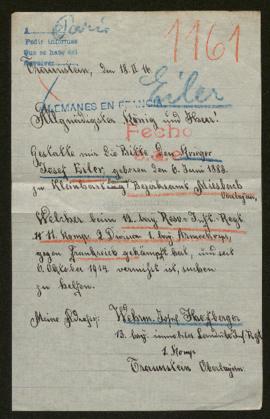 A Paris
Pedir informes
Que se hate del
1161
Traunstein, den 18.II.16
Eiler
ALEMANES EN FRANCIA
Allgnädigster König und Herr!
Fecho
Gestatte mir die Bitte den Krieger
Josef Eiler geboren den 6. Juni 1888.
zu Kleinhartpenning Bezirksamts Miesbach
Oberbayern,
Welcher beim 12. bay. Res. Inft. Regt.
11. Komp. 1. bay. Armeekorps,
gegen Frankreich gekämpft hat, und seit
6. Oktober 1914 vermisst ist, suchen
zu helfen.
Meine Adresse: Wehrm. Josef
13. bay. immobiles Landst. Inf. Regt.
1. Komp.
Traunstein Oberbayern